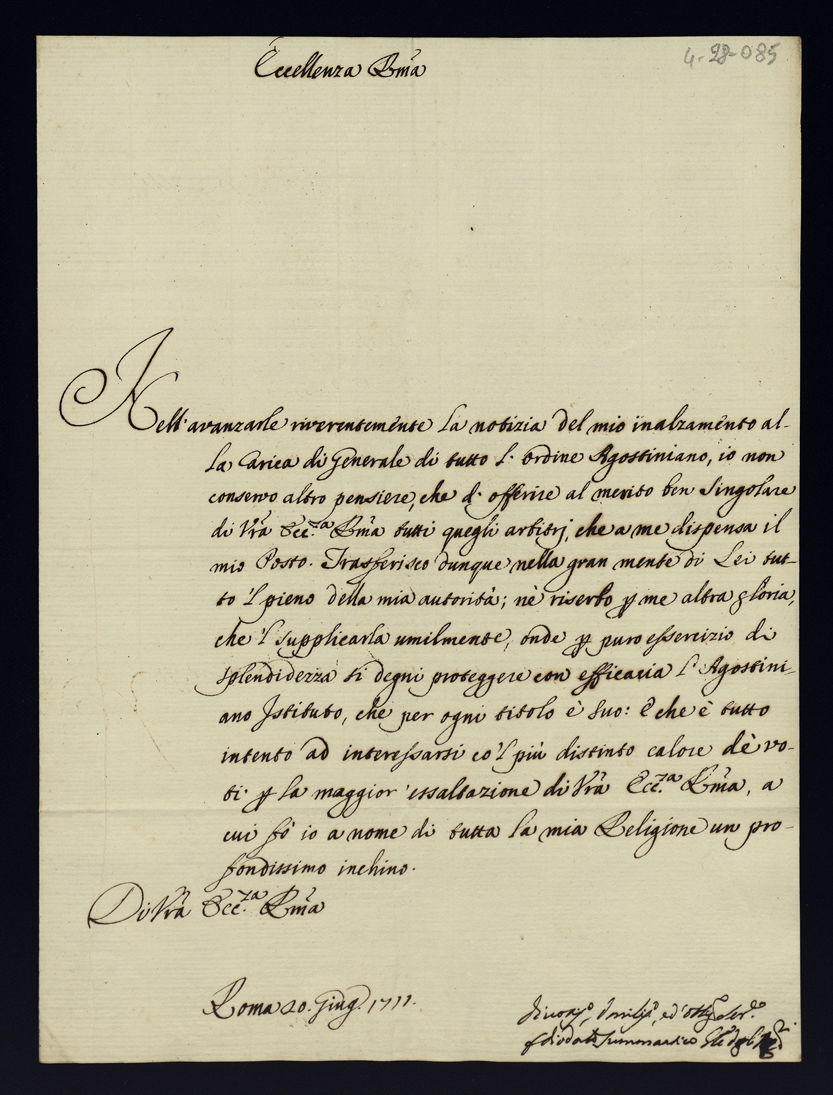 4-28-085
Eccellenza Rma
Nell'avanzarle riverentemẽnte la notizia del mio inalzamẽnto al-
la Carica di Generale di tutto l'ordine Agostiniano, io non
conservo altro pensiere, che d'offerire al merito ben singolare
di Vrã Ecc.za Rma tutti quegli arbitrj, che a me dispensa il
mio Posto. Trasferisco dunque nella gran mente di Lei tut-
to 'l pieno della mia autorità; nè riserbo ꝑ me altra gloria,
che 'l supplicarla umilmente, onde ꝑ puro essercizio di
splendidezza si degni proteggere con efficacia l'Agostini-
ano Istituto, che per ogni titolo è suo: E che è tutto
intento ad interessarsi co'l più distinto calore dè vo-
ti ꝑ la maggior essaltazione di Vrã Ecc.za Rma, a
cui fò io a nome di tutta la mia Religione un pro-
fondissimo inchino.
Di Vrã Ecc.za Rma
Roma 20. Giug. 1711.
ed